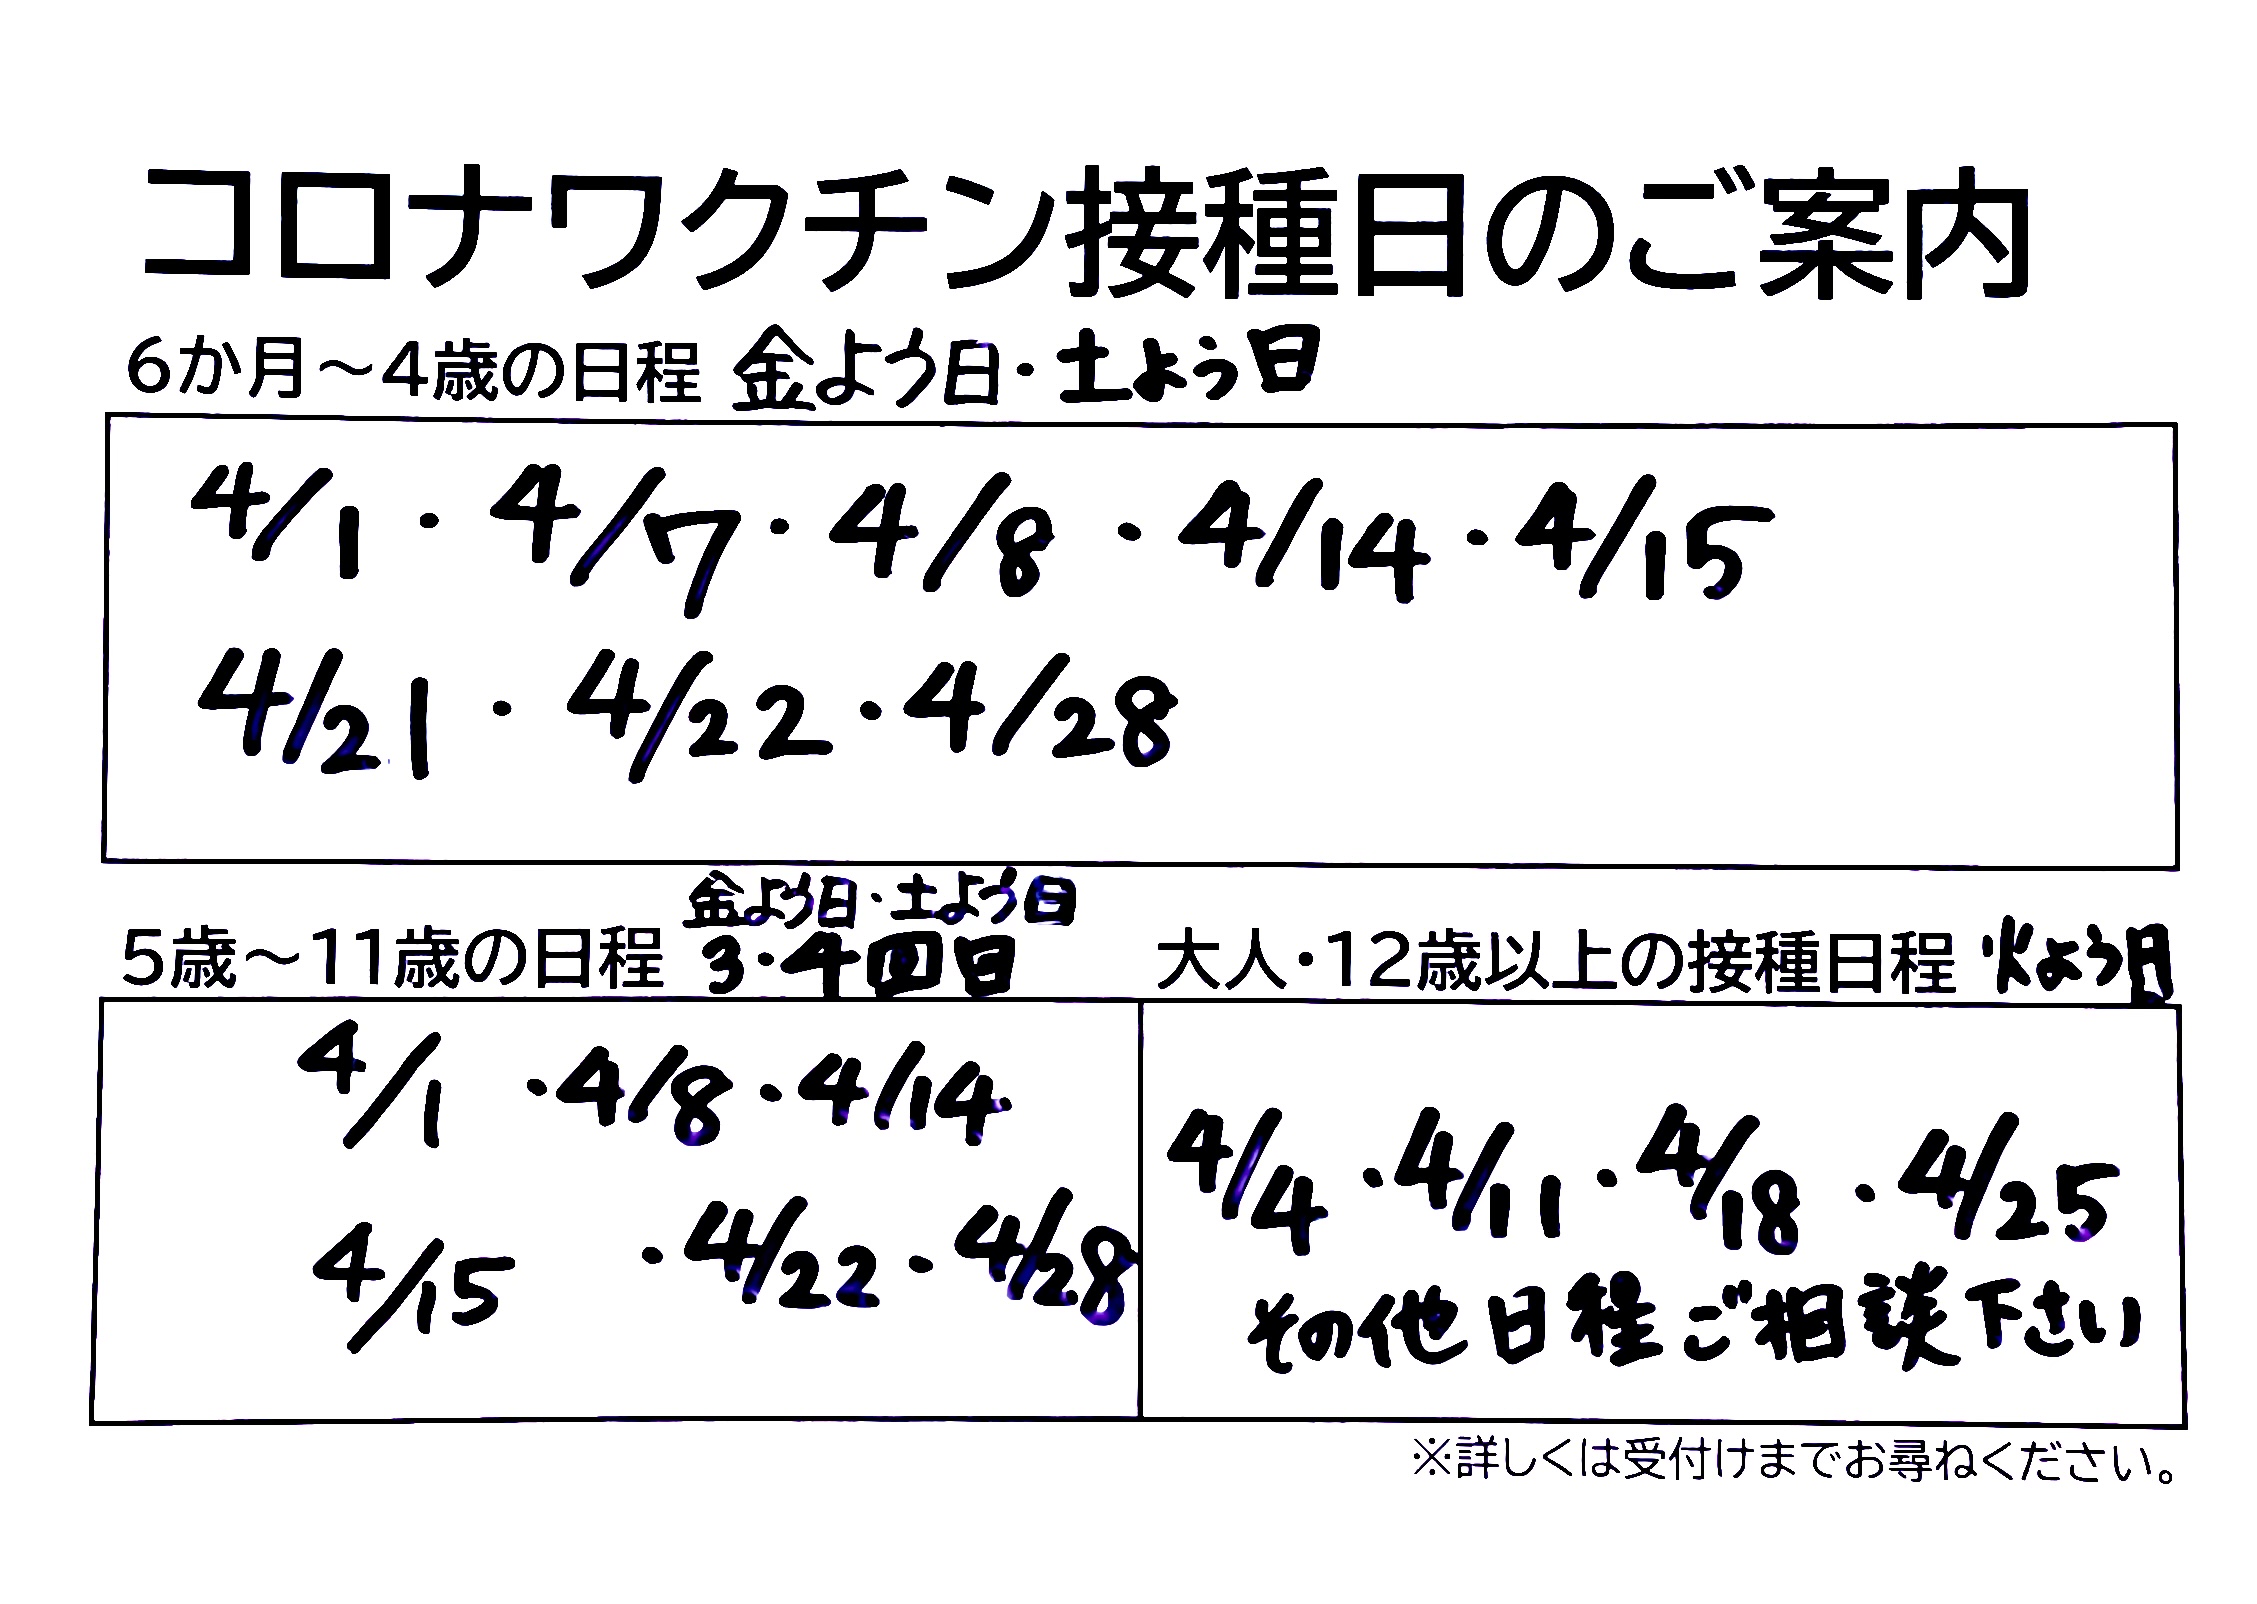 コロナワクチン接種日のご案内
6か月～4歳の日程 金よう日・土よう日
4/1・4/7・4/8・4/14・4/15
4/21・4/22・4/28
金よう日・土よう日
5歳～11歳の日程 3・4回目
4/1・4/8・4/14
4/15・4/22・4/28
大人・12歳以上の接種日程 火よう日
4/4・4/11・4/18・4/25
その他日程ご相談下さい
※詳しくは受付けまでお尋ねください。